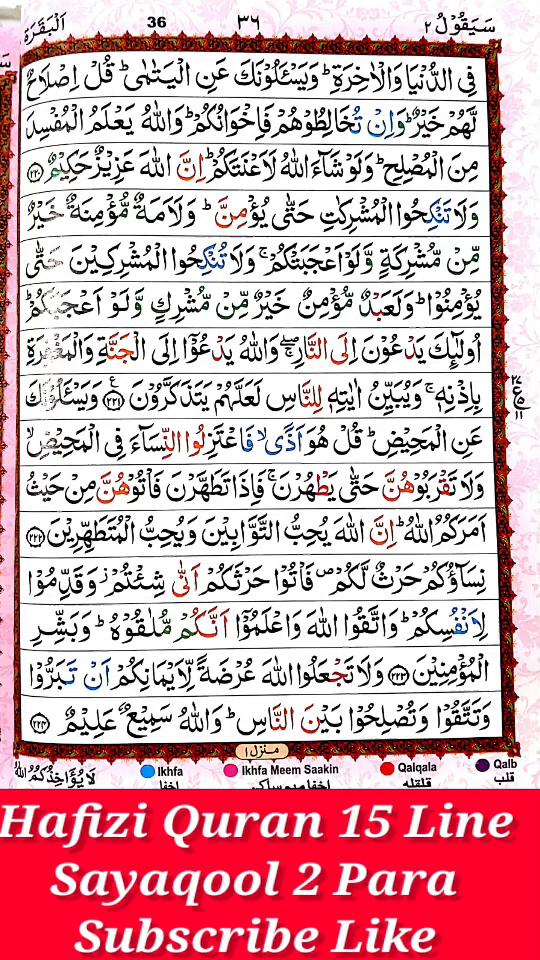 سَيَقُوْلُ ٢ ٣٦ 36 اَلْبَقَرَة
فِى الدُّنْيَا وَالْاٰخِرَةِ ؕ وَيَسْـَٔلُوْنَكَ عَنِ الْيَتٰمٰى ؕ قُلْ اِصْلَاحٌ
لَّهُمْ خَيْرٌ ؕ وَاِنْ تُخَالِطُوْهُمْ فَاِخْوَانُكُمْ ؕ وَاللّٰهُ يَعْلَمُ الْمُفْسِدَ
مِنَ الْمُصْلِحِ ؕ وَلَوْ شَآءَ اللّٰهُ لَاَعْنَتَكُمْ ؕ اِنَّ اللّٰهَ عَزِيْزٌ حَكِيْمٌ ﴿٢٢٠﴾
وَلَا تَنْكِحُوا الْمُشْرِكٰتِ حَتّٰى يُؤْمِنَّ ؕ وَلَاَمَةٌ مُّؤْمِنَةٌ خَيْرٌ
مِّنْ مُّشْرِكَةٍ وَّلَوْ اَعْجَبَتْكُمْ ۚ وَلَا تُنْكِحُوا الْمُشْرِكِيْنَ حَتّٰى
يُؤْمِنُوْا ؕ وَلَعَبْدٌ مُّؤْمِنٌ خَيْرٌ مِّنْ مُّشْرِكٍ وَّلَوْ اَعْجَبَكُمْ ؕ
اُولٰٓئِكَ يَدْعُوْنَ اِلَى النَّارِ ۖۚ وَاللّٰهُ يَدْعُوْٓا اِلَى الْجَنَّةِ وَالْمَغْفِرَةِ
بِاِذْنِهٖ ۚ وَيُبَيِّنُ اٰيٰتِهٖ لِلنَّاسِ لَعَلَّهُمْ يَتَذَكَّرُوْنَ ﴿٢٢١﴾ وَيَسْـَٔلُوْنَكَ
عَنِ الْمَحِيْضِ ؕ قُلْ هُوَ اَذًى ۙ فَاعْتَزِلُوا النِّسَآءَ فِى الْمَحِيْضِ ۙ
وَلَا تَقْرَبُوْهُنَّ حَتّٰى يَطْهُرْنَ ۚ فَاِذَا تَطَهَّرْنَ فَاْتُوْهُنَّ مِنْ حَيْثُ
اَمَرَكُمُ اللّٰهُ ؕ اِنَّ اللّٰهَ يُحِبُّ التَّوَّابِيْنَ وَيُحِبُّ الْمُتَطَهِّرِيْنَ ﴿٢٢٢﴾
نِسَآؤُكُمْ حَرْثٌ لَّكُمْ ۪ فَاْتُوْا حَرْثَكُمْ اَنّٰى شِئْتُمْ ۫ وَقَدِّمُوْا
لِاَنْفُسِكُمْ ؕ وَاتَّقُوا اللّٰهَ وَاعْلَمُوْٓا اَنَّكُمْ مُّلٰقُوْهُ ؕ وَبَشِّرِ
الْمُؤْمِنِيْنَ ﴿٢٢٣﴾ وَلَا تَجْعَلُوا اللّٰهَ عُرْضَةً لِّاَيْمَانِكُمْ اَنْ تَبَرُّوْا
وَتَتَّقُوْا وَتُصْلِحُوْا بَيْنَ النَّاسِ ؕ وَاللّٰهُ سَمِيْعٌ عَلِيْمٌ ﴿٢٢٤﴾
منزل ١
لَا يُؤَاخِذُكُمُ اللّٰهُ
Ikhfa Ikhfa Meem Saakin Qalqala Qalb
اخفا اخفا میم ساکن قلقله قلب
Hafizi Quran 15 Line
Sayaqool 2 Para
Subscribe Like